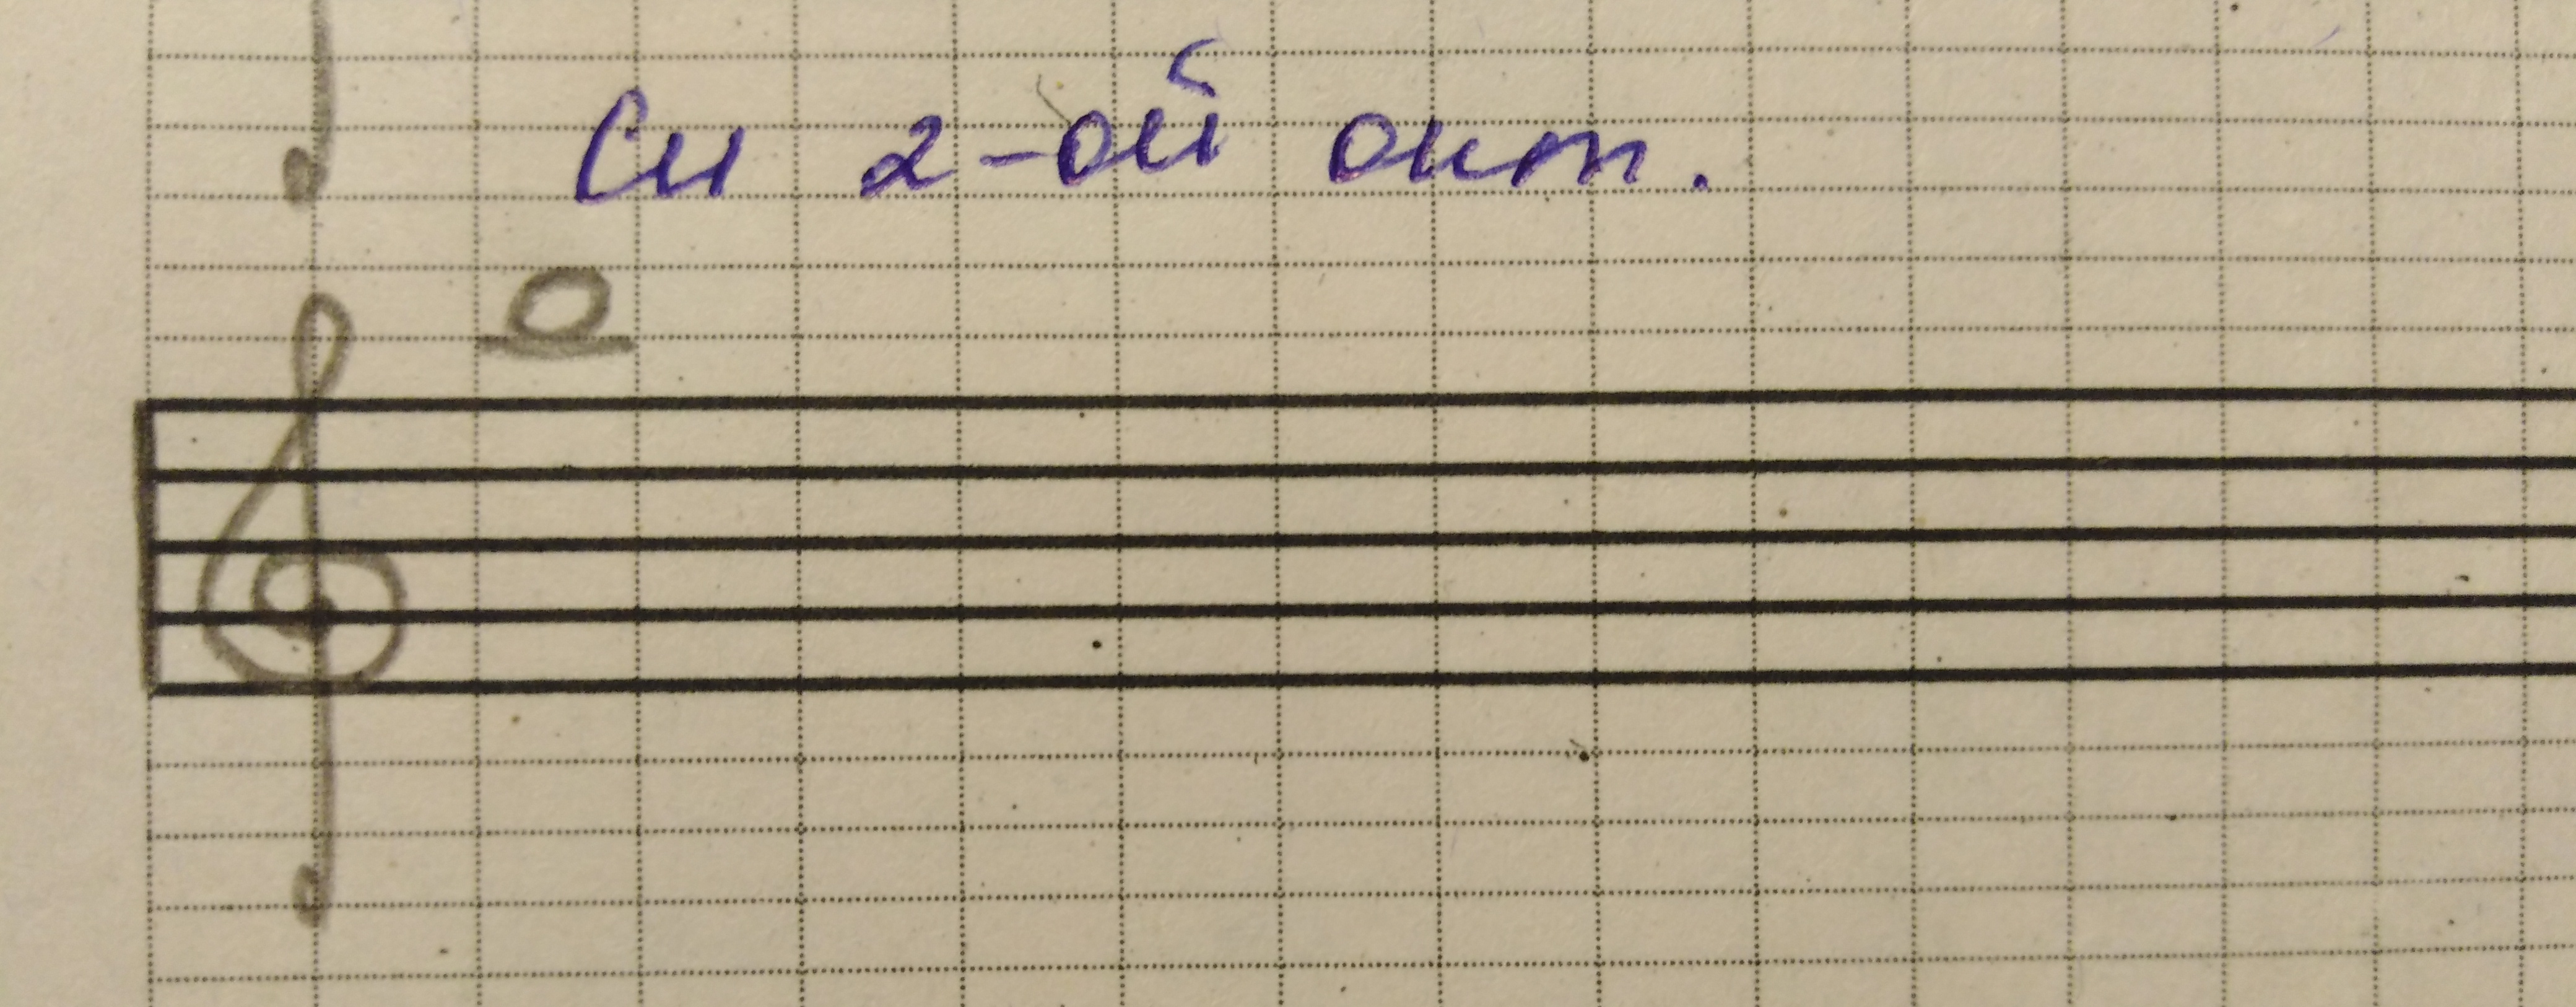 Си 2-ой окт.